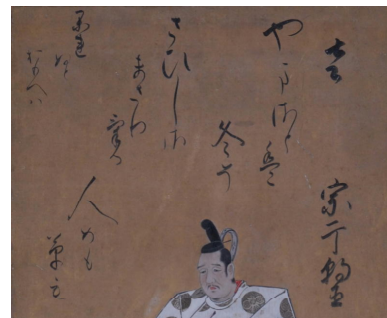 宗于朝臣
やまさとは
冬そ
さひしさ
まさり
ける
人めも
草も
かれ
ぬと
おもへは